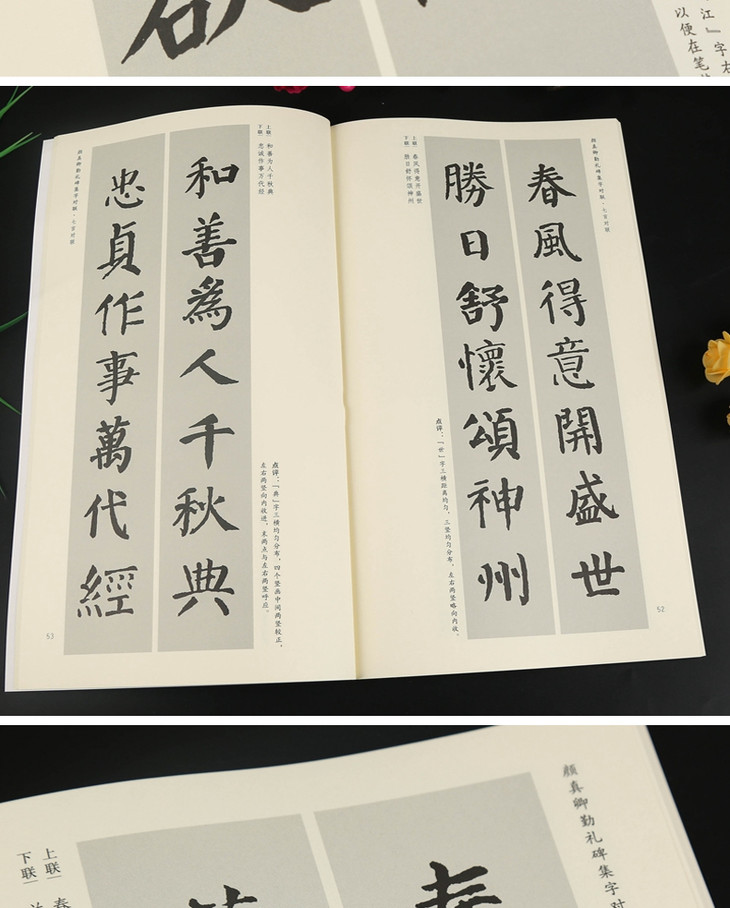 江』字右
以便在笔
颜真卿勤礼碑集字对联·七言对联
春風得意開盛世
勝日舒懷頌神州
上联｜春风得意开盛世
下联｜胜日舒怀颂神州
点评：「世」字三横距离约匀，三竖约匀分布，左右两竖略向内收。
52
和善為人千秋典
忠貞作事萬代經
上联｜和善为人千秋典
下联｜忠诚作事万代经
点评：「典」字三横约匀分布，四个竖画中间两竖较正，
左右两竖向内收进，末两点与左右两竖呼应。
颜真卿勤礼碑集字对联·七言对联
53
颜真卿勤礼碑集字对
春
上联｜春
下联｜